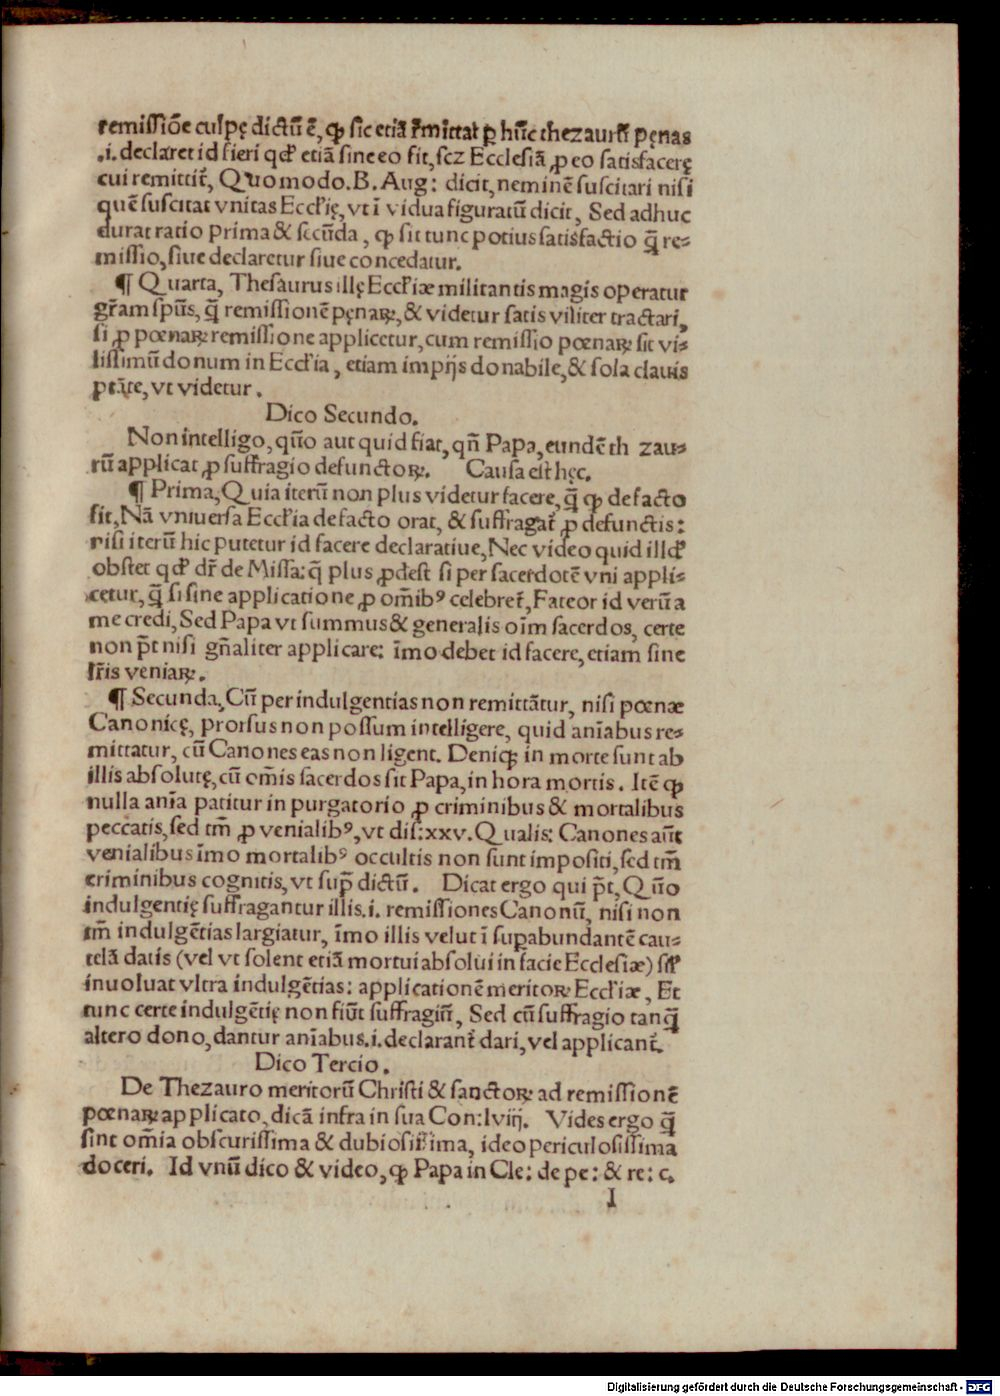 remissiōe culpę dictū ē, ꝙ sic etiā r̄mittat ꝑ hūc thezaurū pęnas
.i. declaret id fieri qd̛ etiā sine eo fit, scz Ecclesiā ꝓ eo satisfacerę
cui remittit̄, Quomodo. B. Aug: dicit, neminē suscitari nisi
quē suscitat vnitas Eccl̛ię, vt ī vidua figuratū dicit, Sed adhuc
durat ratio prima & secūda, ꝙ sit tunc potius satisfactio q̄̃ re⸗
missio, siue declaretur siue concedatur.
¶ Quarta, Thesaurus illę Eccl̛iæ militantis magis operatur
gr̄am spūs, q̄̃ remissionē pęnaꝝ, & videtur satis viliter tractari,
si ꝓ pœnaꝝ remissione applicetur, cum remissio pœnaꝝ sit vi⸗
lissimū donum in Eccl̛ia, etiam impijs donabile, & sola clauis
ptāte, vt videtur.
Dico Secundo.
Non intelligo, quō aut quid fiat, qn̄ Papa, eundē th zau⸗
rū applicat ꝓ suffragio defunctoꝝ. Causa est hęc.
¶ Prima, Quia iterū non plus videtur facere, q̄̃ ꝙ de facto
fit, Nā vniuersa Eccl̛ia de facto orat, & suffragat̄ ꝓ defunctis:
nisi iterū hic putetur id facere declaratiue, Nec video quid illd̛
obstet qd̛ dr̄ de Missa: q̄ plus ꝓdest si per sacerdotē vni appli⸗
cetur, q̄̃ si sine applicatione ꝓ om̄ibꝰ celebret̄, Fateor id verū a
me credi, Sed Papa vt summus & generalis oīm sacerdos, certe
non pt̄ nisi gn̄aliter applicare: īmo debet id facere, etiam sine
lr̄is veniaꝝ.
¶ Secunda, Cū per indulgentias non remittātur, nisi pœnæ
Canonicę, prorsus non possum intelligere, quid anīabus re⸗
mittatur, cū Canones eas non ligent. Deniqꝫ in morte sunt ab
illis absolutę, cū om̄is sacerdos sit Papa, in hora mortis. Itē ꝙ
nulla anīa patitur in purgatorio ꝓ criminibus & mortalibus
peccatis, sed tm̄ ꝓ venialibꝰ, vt dis: xxv. Qualis: Canones aūt
venialibus īmo mortalibꝰ occultis non sunt impositi, sed tm̄
criminibus cognitis, vt sup̄ dictū. Dicat ergo qui pt̄, Quō
indulgentię suffragantur illis .i. remissiones Canonū, nisi non
tm̄ indulgētias largiatur, īmo illis velut ī sup̄abundantē cau⸗
telā datis (vel vt solent etiā mortui absolui in facie Ecclesiæ) sil̛
inuoluat vltra indulgētias: applicationē meritoꝝ Eccl̛iæ, Et
tunc certe indulgētię non fiūt suffragiū, Sed cū suffragio tanq̄̃
altero dono, dantur anīabus .i. declarant̄ dari, vel applicant̄.
Dico Tercio.
De Thezauro meritorū Christi & sanctoꝝ ad remissionē
pœnaꝝ applicato, dicā infra in sua Con: lviij. Vides ergo q̄̃
sint om̄ia obscurissima & dubiosissima, ideo periculosissima
doceri. Id vnū dico & video, ꝙ Papa in Cle: de pe: & re: c.
I
Digitalisierung gefördert durch die Deutsche Forschungsgemeinschaft - DFG